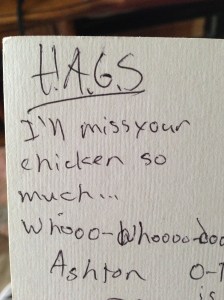 H.A.G.S
I'll miss your
chicken so
much...
Whooo-whoooo-doo
Ashton O-
is